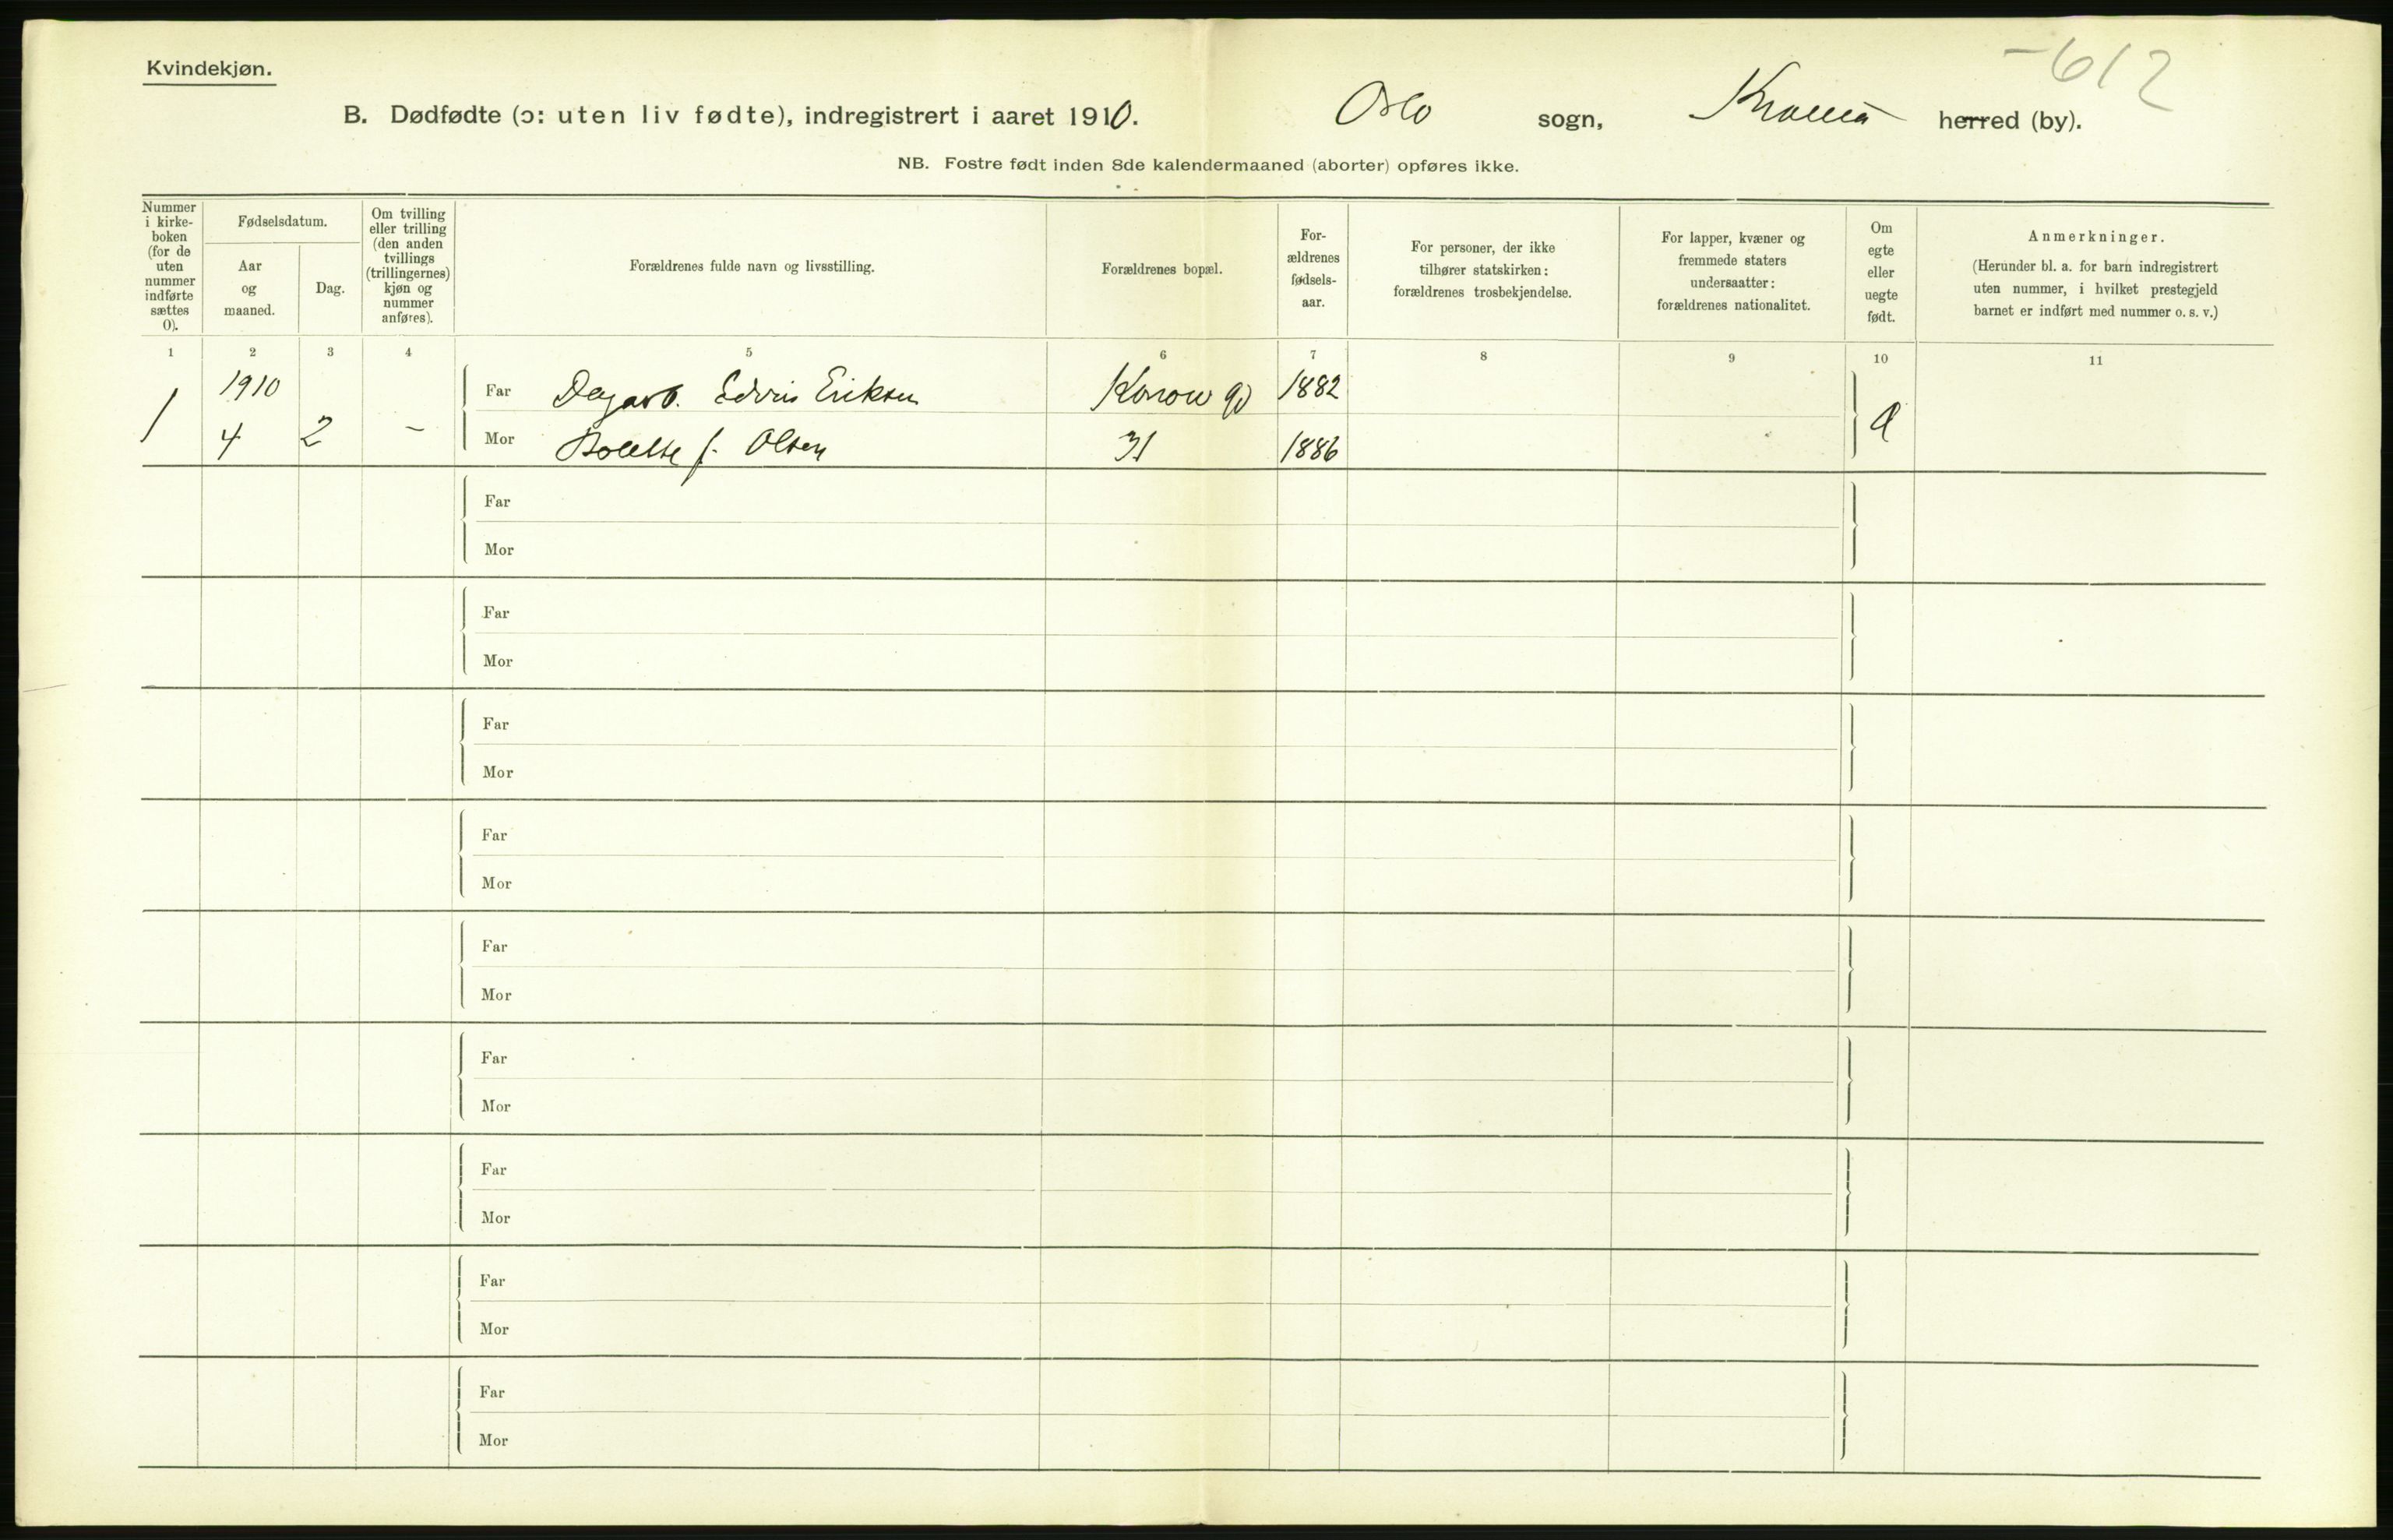 Kvindekjøn.
-612
B. Dødfødte (ɔ: uten liv fødte), indregistrert i aaret 1910. Oslo sogn, Krania herred (by).
NB. Fostre født inden 8de kalendermaaned (aborter) opføres ikke.
Nummer
i kirke-
boken
(for de
uten
nummer
indførte
sættes
0).
Fødselsdatum.
Aar
og
maaned.
Dag.
Om tvilling
eller trilling
(den anden
tvillings
(trillingernes)
kjøn og
nummer
anføres).
Forældrenes fulde navn og livsstilling.
Forældrenes bopæl.
For-
ældrenes
fødsels-
aar.
For personer, der ikke
tilhører statskirken:
forældrenes trosbekjendelse.
For lapper, kvæner og
fremmede staters
undersaatter:
forældrenes nationalitet.
Om
egte
eller
uegte
født.
Anmerkninger.
(Herunder bl. a. for barn indregistrert
uten nummer, i hvilket prestegjeld
barnet er indført med nummer o. s. v.)
1 2 3 4 5 6 7 8 9 10 11
1910 Far Dagarb. Edvin Eriksen Konow gd 1882
1 4 2 - Mor Bolette f. Olsen 31 1886
Far
Mor
Far
Mor
Far
Mor
Far
Mor
Far
Mor
Far
Mor
Far
Mor
Far
Mor
Far
Mor